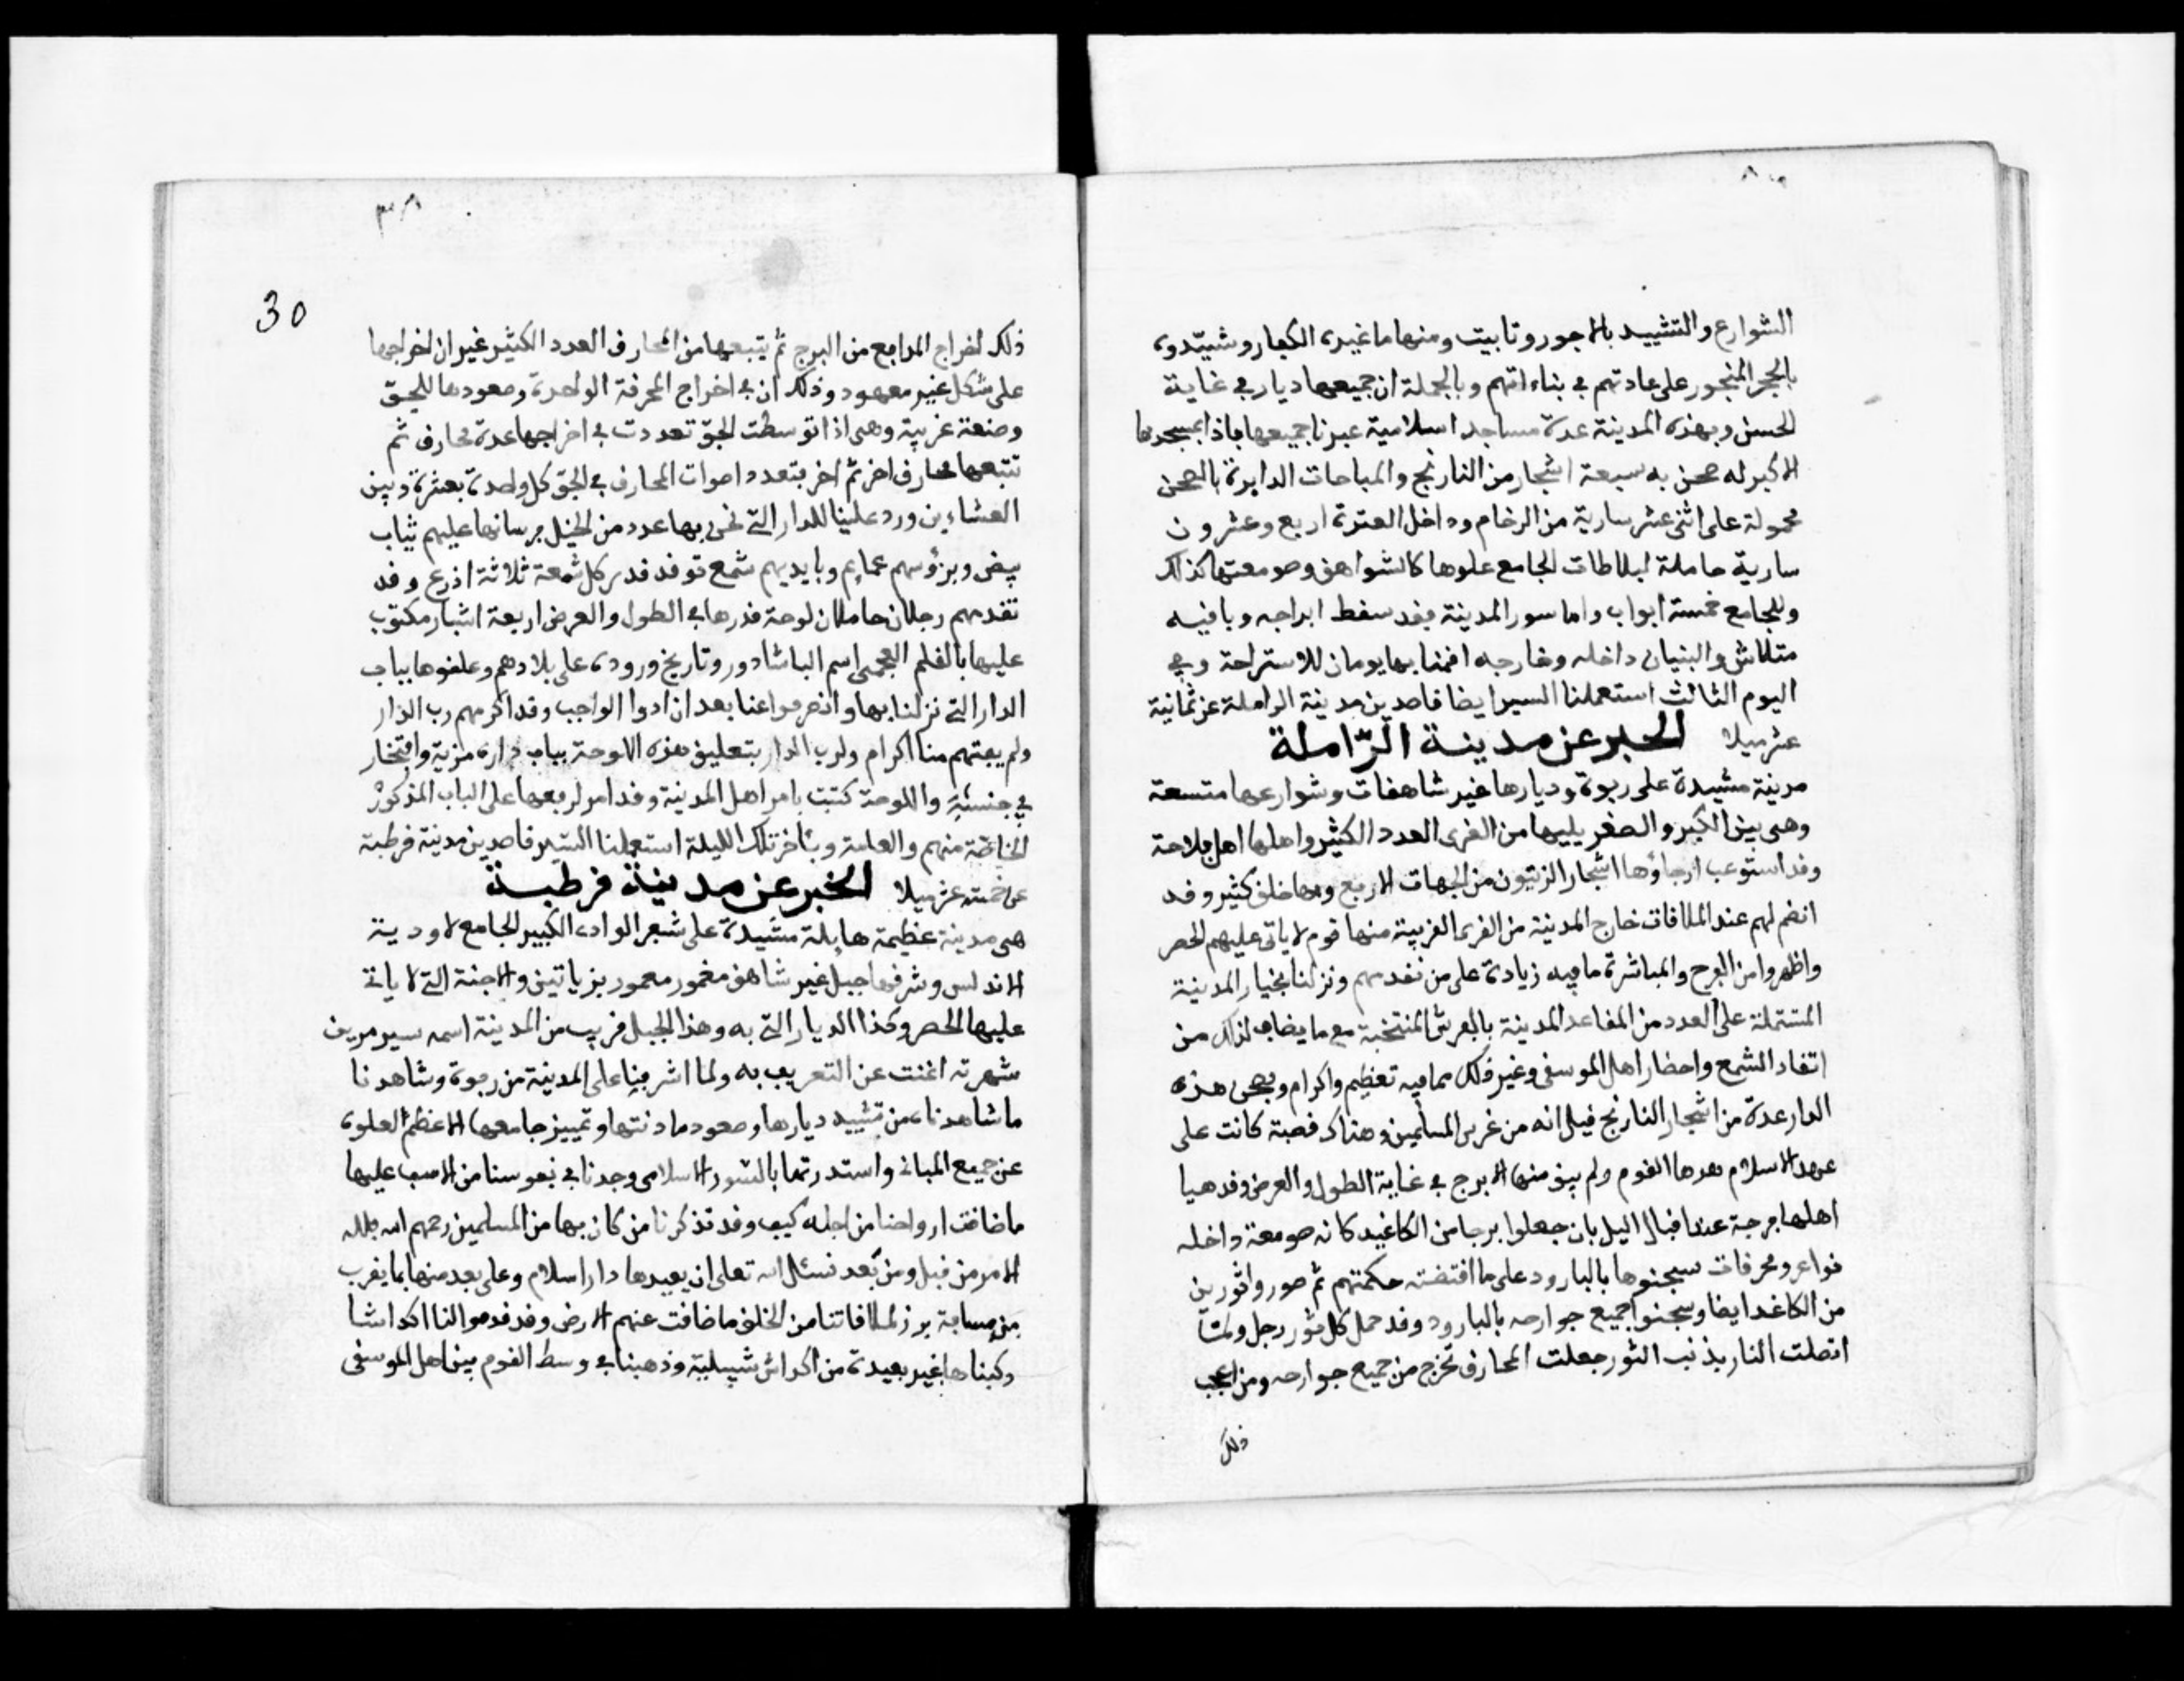 الشوارع والتشييد بالاجور وتابيت ومنها ما غيره الكفار وشيّدوه
بالحجر المنجور على عادتهم في بناءاتهم وبالجملة ان جميعها ديار في غاية
الحسن وبهذه المدينة عدة مساجد اسلامية عبرنا جميعها فاذا بمسجدها
الاكبر له صحن به سبعة اشجار من النارنج والمباحات الدايرة بالصحن
محمولة على اثنى عشر سارية من الرخام وداخل العترة اربع وعشرون
سارية حاملة لبلاطات الجامع علوها كالشواهق وصومعتها كذلك
وللجامع خمسة ابواب واما سور المدينة فقد سقط ابراجه وباقيه
متلاش والبنيان داخله وخارجه اقمنا بها يومان للاستراحة وفي
اليوم الثالث استعملنا السير ايضا قاصدين مدينة الراملة عن ثمانية
عشر ميلا الخبر عن مدينة الرّاملة
مدينة مشيدة على ربوة وديارها غير شاهقات وشوارعها متسعة
وهى بين الكبر والصغر يليها من القرى العدد الكثير واهلها اهل فلاحة
وقد استوعب ارجاؤها اشجار الزيتون من الجهات الاربع وبها خلق كثير وقد
انضم لهم عند الملاقات خارج المدينة من القرى القريبة منها قوم لا ياتى عليهم الحصر
واظهروا من الفرح والمباشرة ما فيه زيادة على من تقدمهم ونزلنا بخيار المدينة
المشتملة على العدد من المقاعد المدينة بالفرش المنتخبة مع ما يضاف لذلك من
اتقاد الشمع واحضار اهل الموسقى وغير ذلك مما فيه تعظيم واكرام وبصحن هذه
الدار عدة من اشجار النارنج قيل انه من غرس المسلمين وهناك قصبة كانت على
عهد الاسلام هدها القوم ولم يبق منها الا برج في غاية الطول والعرض وقد هيا
اهلها فرجة عند اقبال اليل بان جعلوا برجا من الكاغيد كانه صومعة داخله
نواعر ومحرقات سجنوها بالبارود على ما اقتضته حكمتهم ثم صوروا ثورين
من الكاغد ايضا وسجنوا جميع جوارحه بالبارود وقد حمل كل ثور رجل ولما
اتصلت النار بذنب الثور جعلت المحارق تخرج من جميع جوارحه ومن اعجب
ذلك
٣٨
30
ذلك اخراج المدافع من البرج ثم يتبعها من المحارق العدد الكثير غير ان اخراجها
على شكل غير معهود وذلك ان في اخراج المحرقة الواحدة وصعودها للجوّ
وصنعة غريبة وهى اذا توسطت الجوّ تعددت في اخراجها عدة محارق ثم
تتبعها محارق اخر ثم اخر بتعدد اصوات المحارق في الجوّ كل واحدة بعشرة وبين
العشاءين ورد علينا للدار التى نحن بها عدد من الخيل فرسانها عليهم ثياب
بيض وبرؤسهم عمايم وبايديهم شمع توقد قدر كل شمعة ثلاثة اذرع وقد
تقدمهم رجلان حاملان لوحة قدرها في الطول والعرض اربعة اشبار مكتوب
عليها بالقلم العجمى اسم الباشادور وتاريخ وروده على بلادهم وعلقوها بباب
الدار التى نزلنا بها وانصرفوا عنا بعد ان ادوا الواجب وقد اكرمهم رب الدار
ولم يفتهم منا اكرام ولرب الدار بتعليق هذه اللوحة بباب داره مزية وافتخار
في جنسه واللوحة كتبت بامر اهل المدينة وقد امر لرفعها على الباب المذكور
الخاصّة منهم والعامة وبئاخر تلك الليلة استعملنا السير قاصدين مدينة قرطبة
عن خمسة عشر ميلا الخبر عن مدينة قرطبة
هى مدينة عظيمة هايلة مشيدة على شعر الوادى الكبير الجامع لاودية
الاندلس وشرفها جبل غير شاهق مغمور معمور بزياتين والاجنة التى لا ياتى
عليها الحصر وكذا الديار التى به وهذا الجبل قريب من المدينة اسمه سير مرين
شهرته اغنت عن التعريف به ولما اشرفنا على المدينة من ربوة وشاهدنا
ما شاهدناه من تشييد ديارها وصعود ماذنتها وتمييز جامعها الاعظم العلوه
عن جميع المبانى واستدرتها بالسور الاسلامى وجدنا في نفوسنا من الاسف عليها
ما ضاقت ارواحنا من اجله كيف وقد تذكرنا من كان بها من المسلمين رحمهم الله فلله
الامر من قبل ومن بعد نسئل الله تعالى ان يعيدها دار اسلام وعلى بعد منها بما يقرب
من مسافة برز لملاقاتنا من الخلق ما ضاقت عنهم الارض وقد قدموا لنا اكداشا
ركبناها غير بعيدة من اكداش شبيلية وذهبنا في وسط القوم بين اهل الموسقى